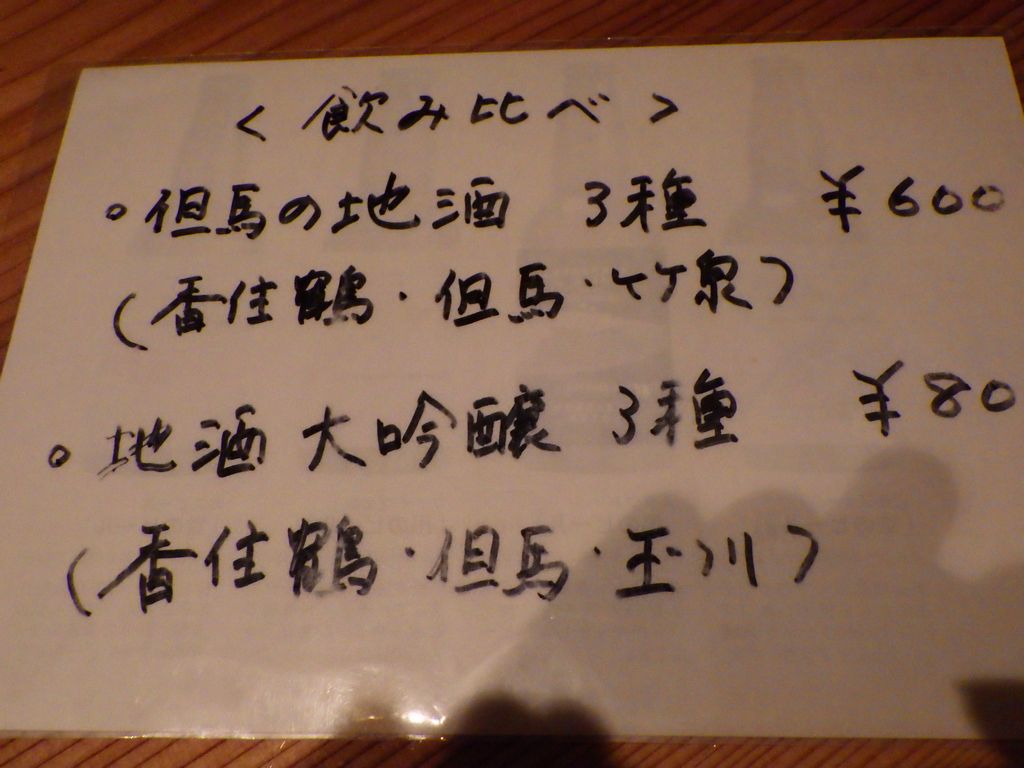 ＜飲み比べ＞
○但馬の地酒 3種 ¥600
（香住鶴・但馬・竹泉）
○地酒 大吟醸 3種 ¥80
（香住鶴・但馬・玉川）